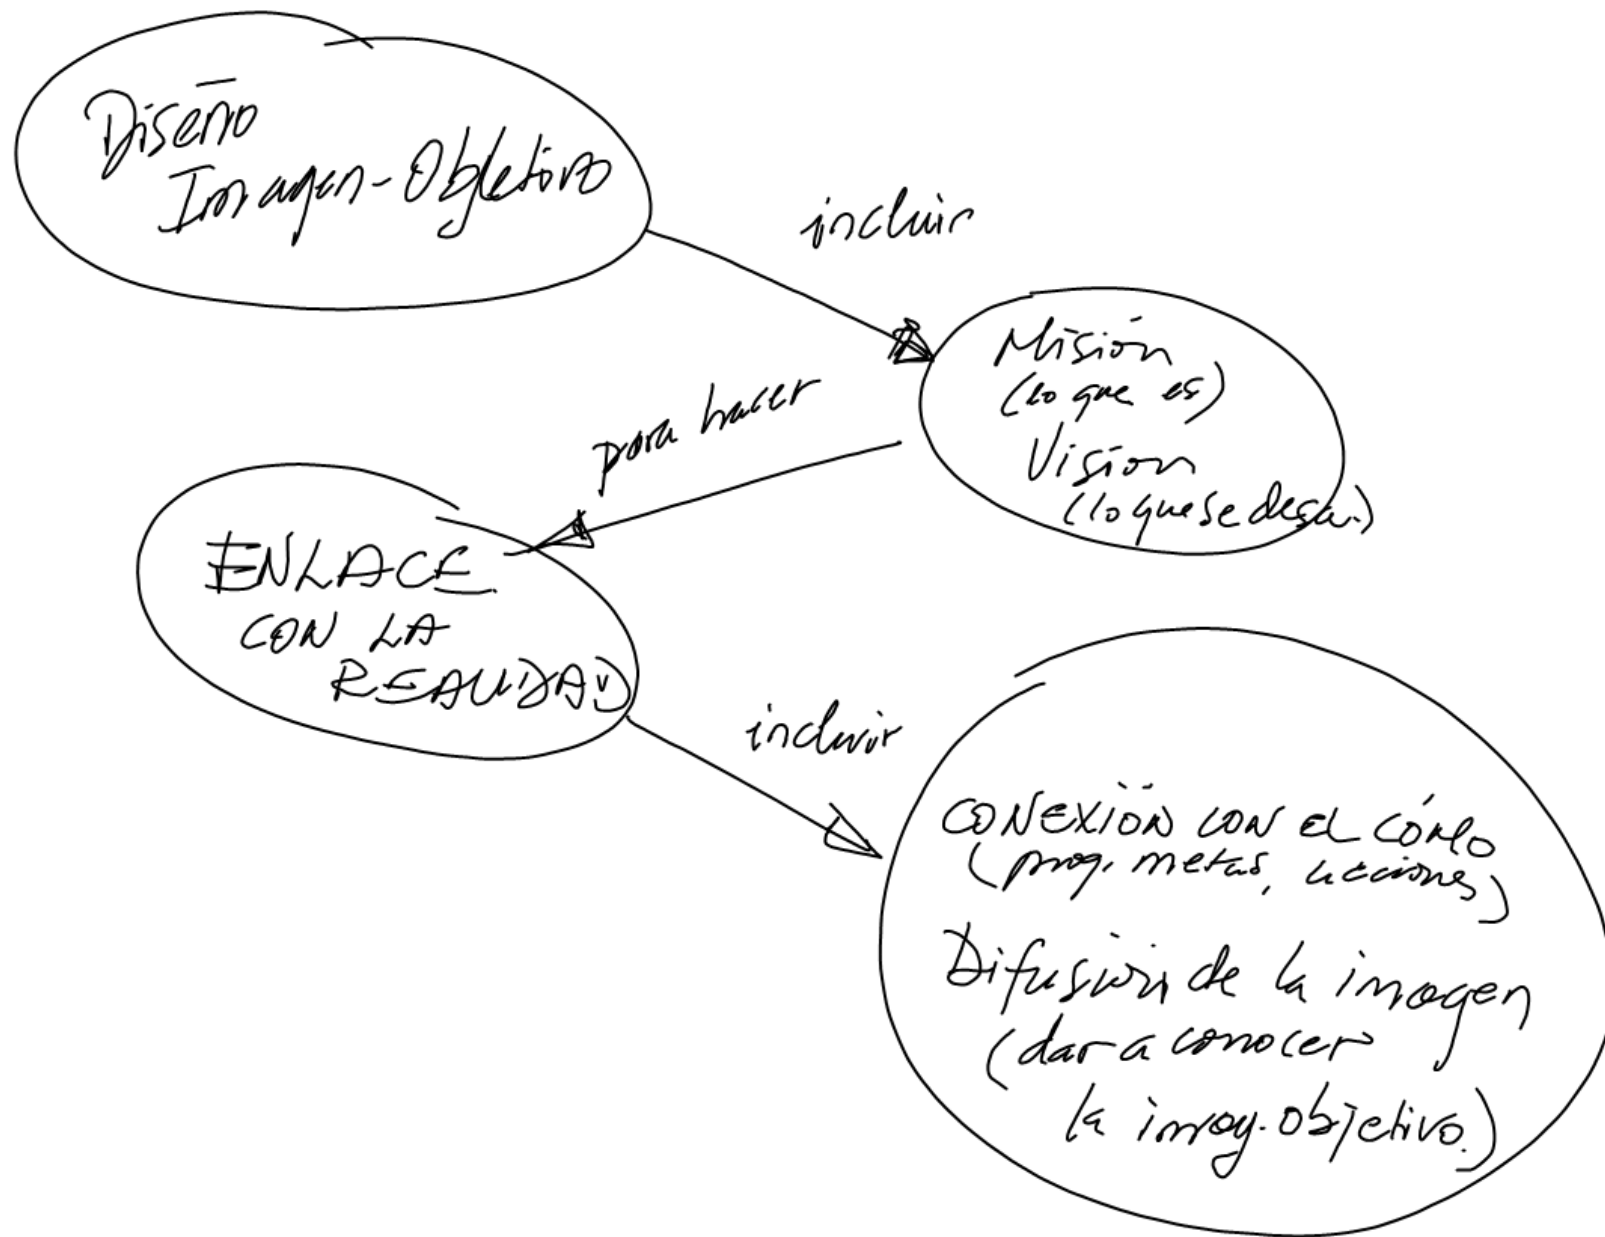 Diseño
Imagen-Objetivo
incluir
Misión
(lo que es)
Visión
(lo que se desea.)
para hacer
ENLACE
CON LA
REALIDAD
incluir
CONEXIÓN CON EL CÓMO
(prog. metas, acciones)
Difusión de la imagen
(dar a conocer
la imag. objetivo.)